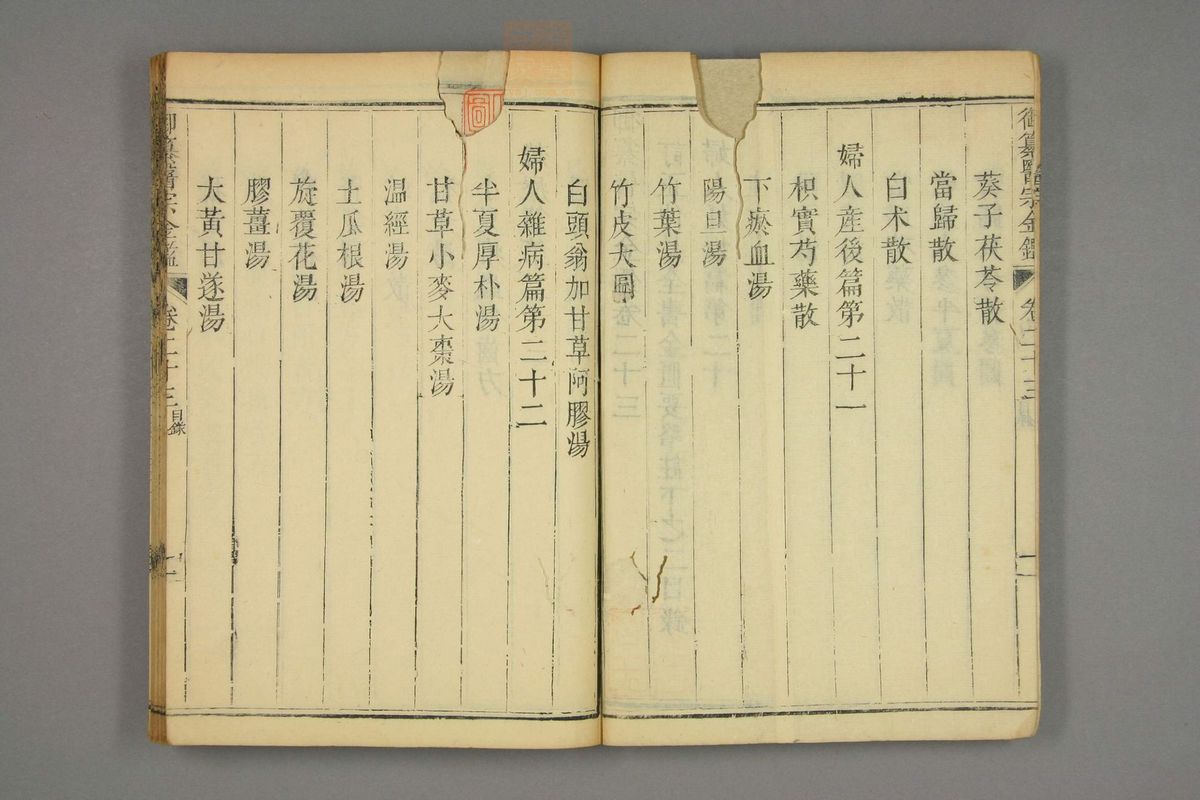 御纂醫宗金鑑
卷二十三
葵子茯苓散
當歸散
白术散
婦人産後篇第二十一
枳實芍藥散
下瘀血湯
陽旦湯
竹葉湯
竹皮大圓
白頭翁加甘草阿膠湯
婦人雜病篇第二十二
半夏厚朴湯
甘草小麥大棗湯
温經湯
土瓜根湯
旋覆花湯
膠薑湯
大黃甘遂湯
御纂醫宗金鑑
卷二十三
目錄